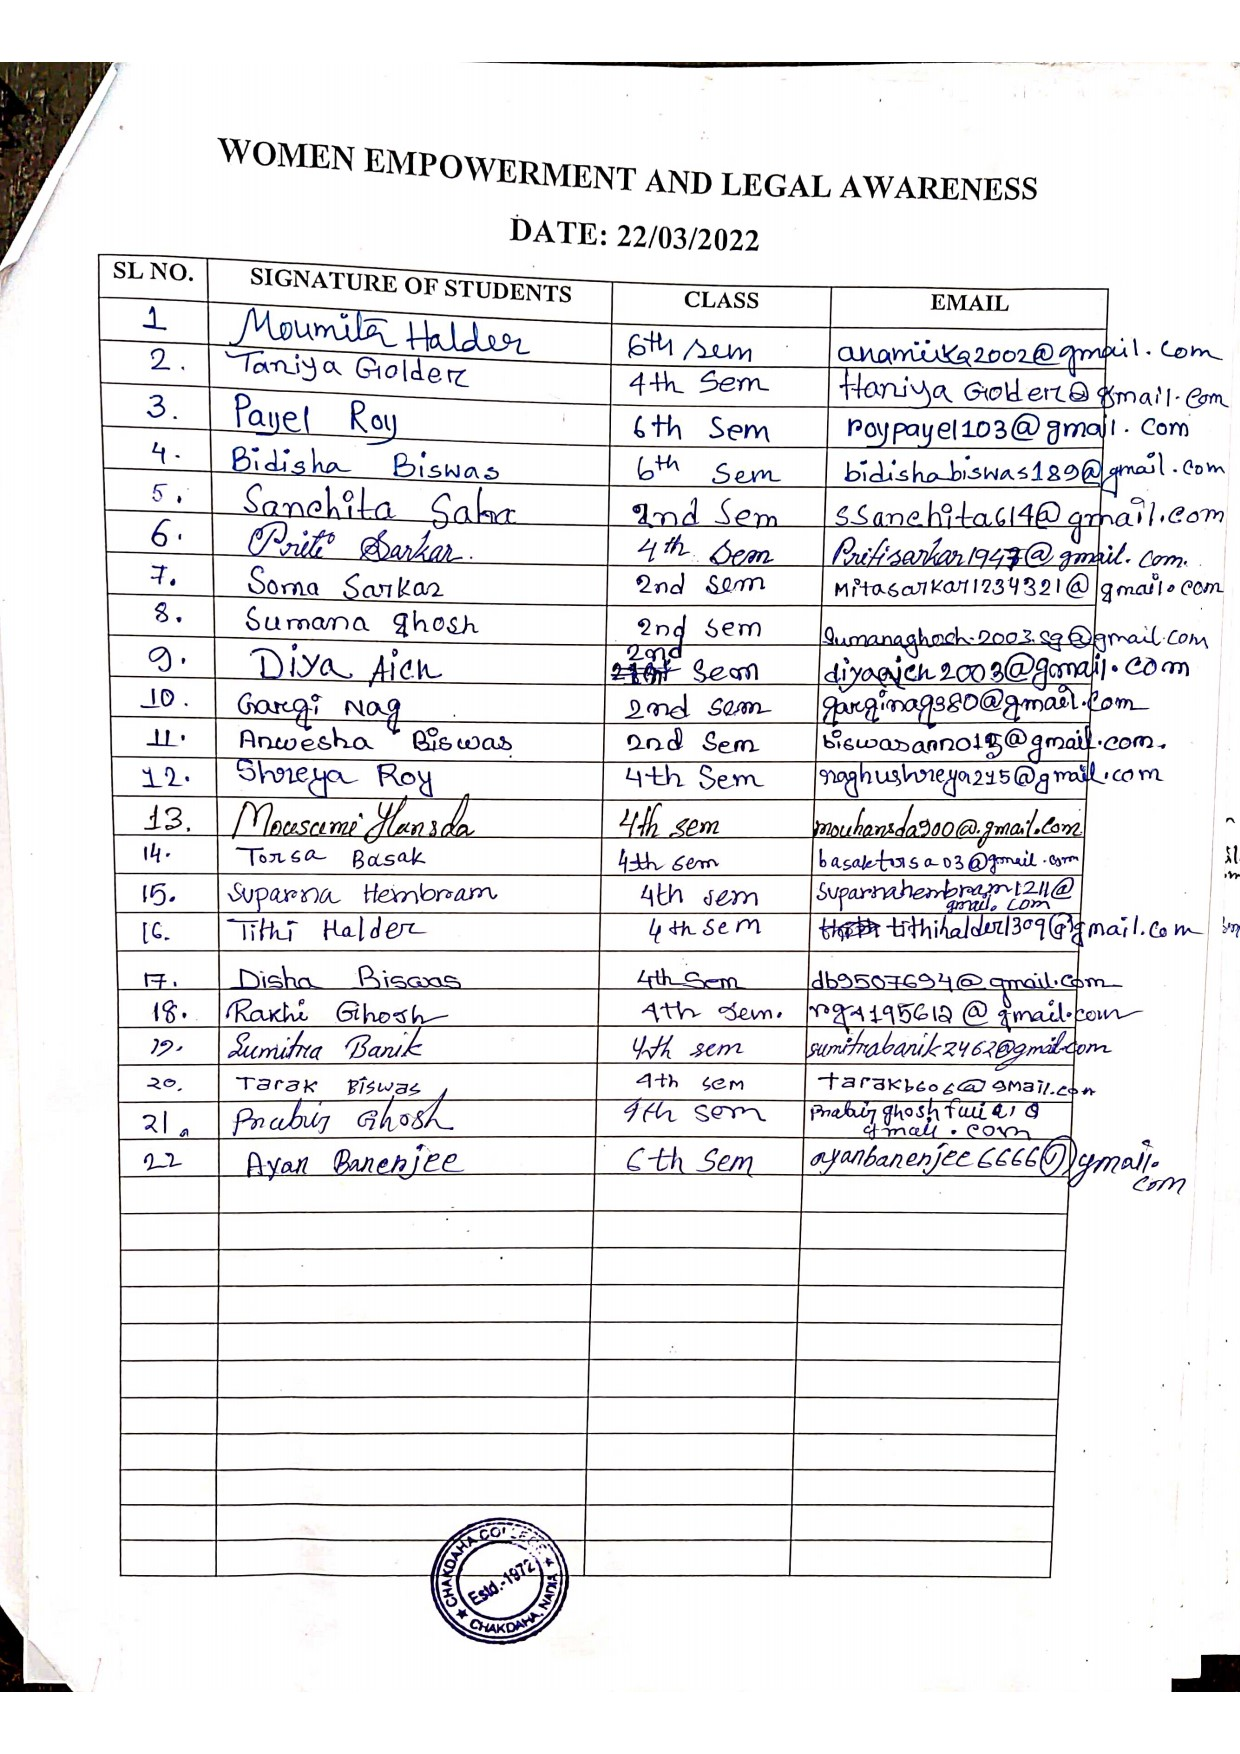 WOMEN EMPOWERMENT AND LEGAL AWARENESS
DATE: 22/03/2022
SL NO. SIGNATURE OF STUDENTS CLASS EMAIL
1 Moumita Halder 6th sem anamika2002@gmail.com
2. Taniya Golder 4th Sem
3. Payel Roy 6th Sem roypayel103@gmail.com
4. Bidisha Biswas 6th Sem bidishabiswas189@gmail.com
5. Sanchita Saha 2nd Sem ssanchita614@gmail.com
6. Priti Sarkar. 4th Sem Pritisarkar1947@gmail.com.
7. Soma Sarkar 2nd sem mitasarkar1234321@gmail.com
8. Sumana ghosh 2nd sem
9. Diya Aich 2nd Sem diyaaich2003@gmail.com
10. Gargi Nag 2nd sem garginag980@gmail.com
11. Anwesha Biswas 2nd Sem
12. Shreya Roy 4th Sem raghushreya215@gmail.com
13. Mousumi Hansda 4th sem mouhansda900@.gmail.com
14. Torsa Basak 4th sem basaktorsa03@gmail.com
15. Suparna Hembram 4th sem suparnahembram1211@
gmail.com
16. Tithi Halder 4th sem tithihalder1309@gmail.com
17. Disha Biswas 4th Sem db9507694@gmail.com
18. Rakhi Ghosh 4th sem. rg4195612@gmail.com
19. Sumitra Banik 4th sem sumitrabanik2462@gmail.com
20. Tarak Biswas 4th sem tarakb606@gmail.com
21. Prabir Ghosh 4th sem
gmail.com
22 Ayan Banerjee 6th Sem ayanbanerjee6666@gmail.
com
CHAKDAHA COLLEGE
Estd.-1972
CHAKDAHA, NADIA